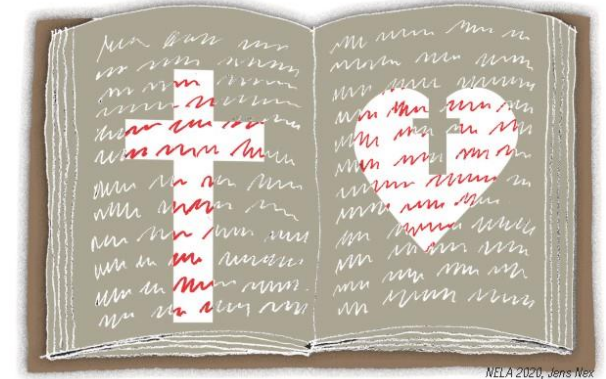 NELA 2020, Jens Nex